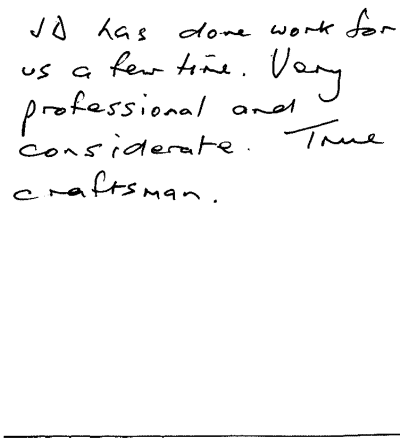 JD has done work for
us a few time. Very
professional and
considerate. True
craftsman.